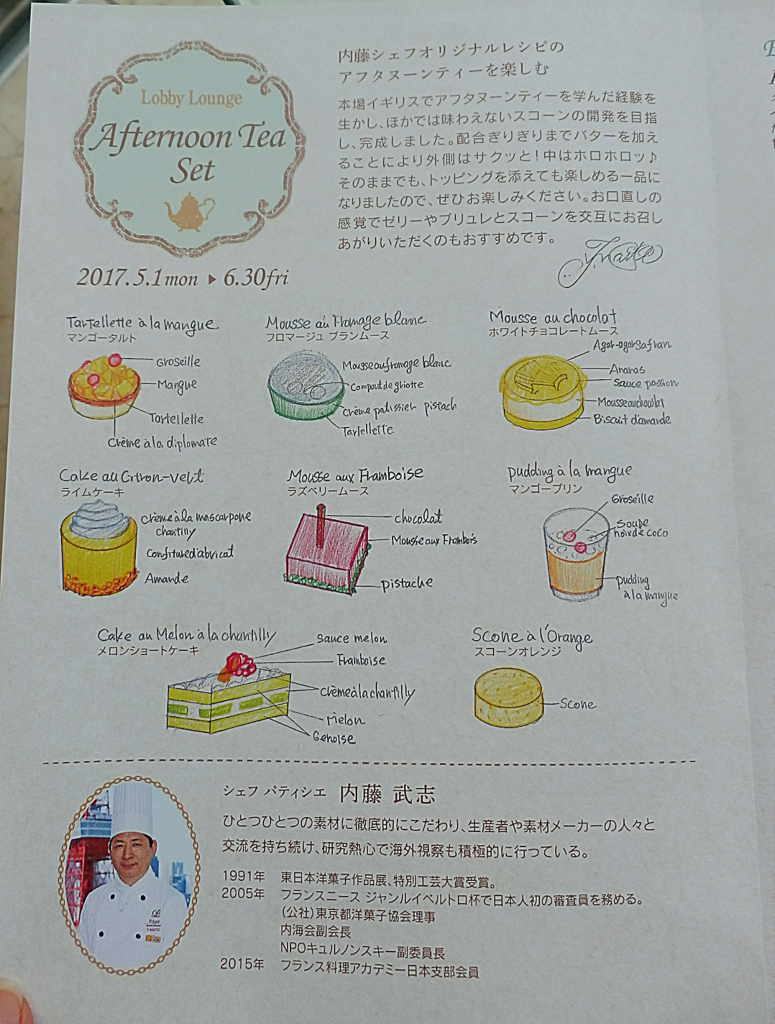 Lobby Lounge
Afternoon Tea
Set
2017.5.1mon ▶ 6.30fri
内藤シェフオリジナルレシピの
アフタヌーンティーを楽しむ
本場イギリスでアフタヌーンティーを学んだ経験を
生かし、ほかでは味わえないスコーンの開発を目指
し、完成しました。配合ぎりぎりまでバターを加え
ることにより外側はサクッと!中はホロホロッ♪
そのままでも、トッピングを添えても楽しめる一品に
なりましたので、ぜひお楽しみください。お口直しの
感覚でゼリーやブリュレとスコーンを交互にお召し
あがりいただくのもおすすめです。
Tartellette à la mangue
マンゴータルト
Groseille
Mangue
Tartellette
Crème à la diplomate
Mousse au Fromage blanc
フロマージュ ブランムース
Mousse au fromage blanc
Compout de griotte
Crème patissier pistach
Tartellette
Mousse au chocolat
ホワイトチョコレートムース
Agar-agar Safran
Ananas
Sauce passion
Mousse au chocolat
Biscuit d'amande
Cake au Citron-vert
ライムケーキ
crème à la mascarpone
chantilly
Confiture d'abricat
Amande
Mousse aux Framboise
ラズベリームース
chocolat
Mousse aux Frambois
pistache
pudding à la mangue
マンゴープリン
Groseille
Soupe
noir de coco
pudding
à la mangue
Cake au Melon à la chantilly
メロンショートケーキ
Sauce melon
Framboise
Crème à la chantilly
melon
Genoise
Scone à l'Orange
スコーンオレンジ
Scone
シェフ パティシエ 内藤 武志
ひとつひとつの素材に徹底的にこだわり、生産者や素材メーカーの人々と
交流を持ち続け、研究熱心で海外視察も積極的に行っている。
1991年 東日本洋菓子作品展、特別工芸大賞受賞。
2005年 フランスニース ジャンルイベルトロ杯で日本人初の審査員を務める。
(公社)東京都洋菓子協会理事
内海会副会長
NPOキュルノンスキー副委員長
2015年 フランス料理アカデミー日本支部会員